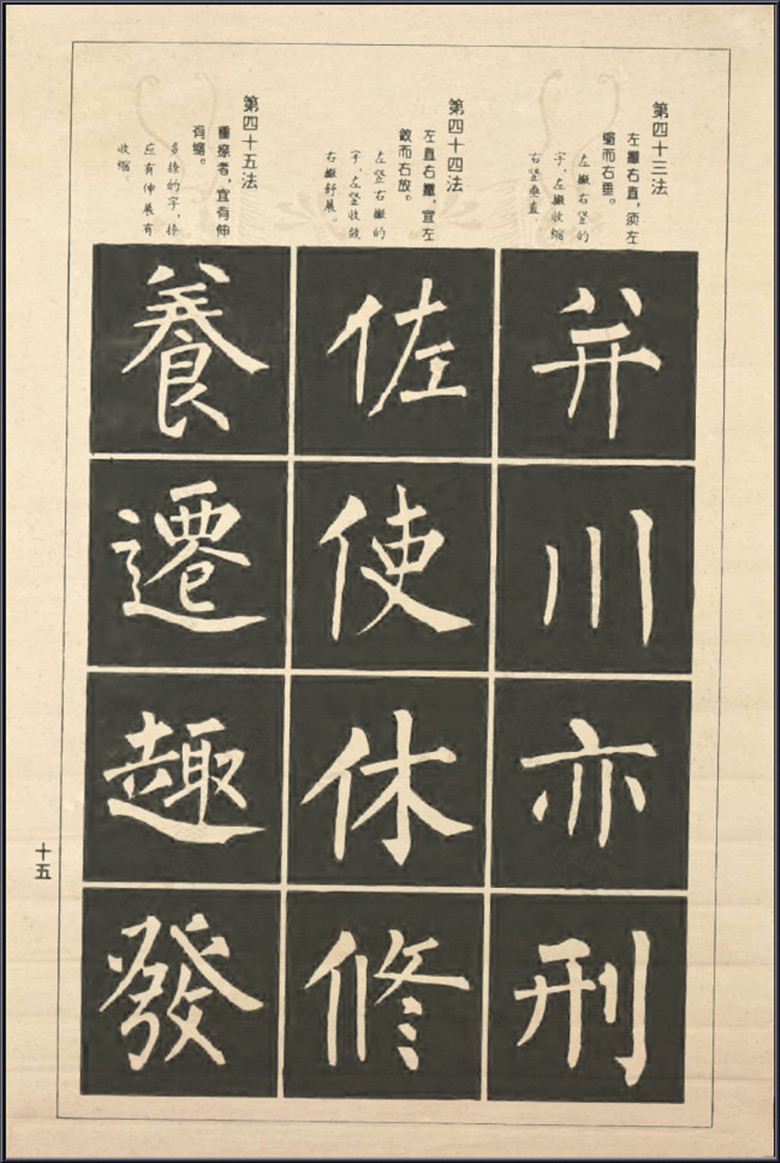 第四十三法
左撇右直，须左
缩而右垂。
左撇右竖的
字，左撇收缩
右竖垂直
并
川
亦
刑
第四十四法
左直右撇，宜左
敛而右放。
左竖右撇的
字，左竖收敛
右撇舒展。
佐
使
休
修
第四十五法
重捺者，宜有伸
有缩。
多捺的字，捺
应有伸展有
收缩。
養
遷
趣
發
十五